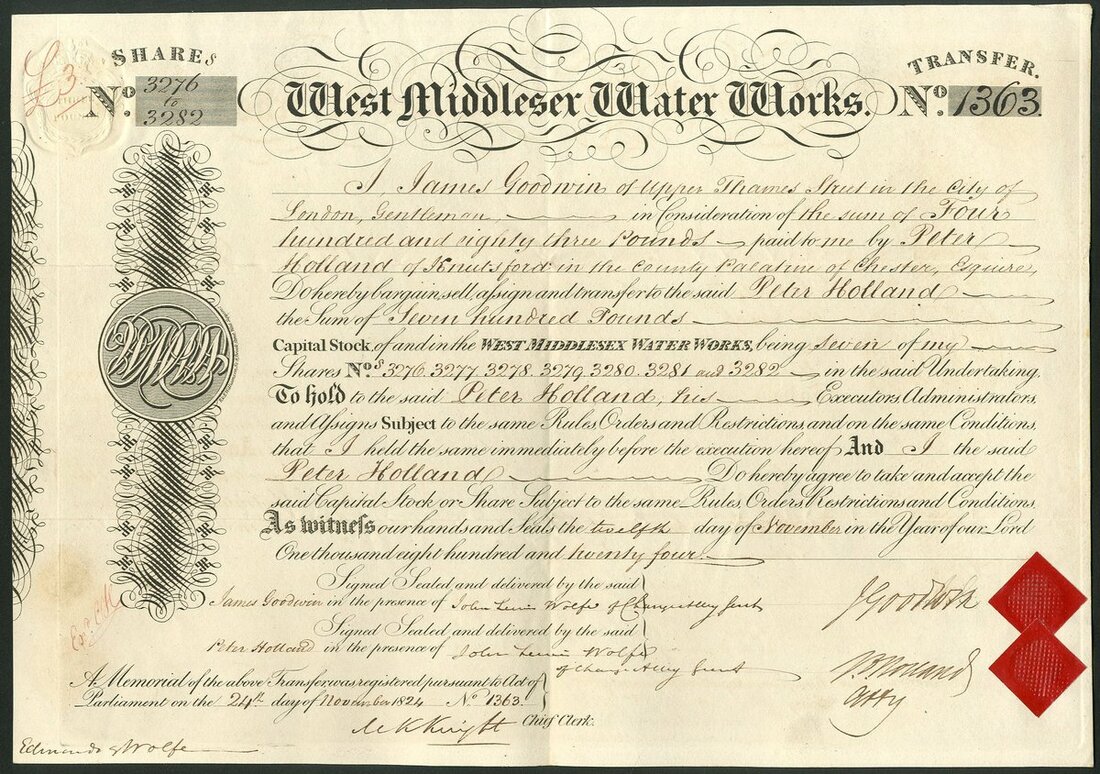 SHARES
No. 3276
to
3282
£3
West Middlesex Water Works.
TRANSFER.
No. 1363.
I, James Goodwin of Upper Thames Street in the City of
London, Gentleman, in Consideration of the sum of Four
hundred and eighty three Pounds paid to me by Peter
Holland of Knutsford in the County Palatine of Chester, Esquire,
Do hereby bargain, sell, assign and transfer to the said Peter Holland
the Sum of Seven hundred Pounds
Capital Stock, of and in the WEST MIDDLESEX WATER WORKS, being Seven of my
Shares Nos. 3276. 3277. 3278. 3279. 3280. 3281 and 3282 in the said Undertaking.
To hold to the said Peter Holland, his Executors, Administrators,
and Assigns Subject to the same Rules, Orders and Restrictions, and on the same Conditions,
that I held the same immediately before the execution hereof And I the said
Peter Holland Do hereby agree to take and accept the
said Capital Stock or Share Subject to the same Rules, Orders, Restrictions and Conditions.
As witness our hands and Seals the twelfth day of November in the Year of our Lord
One thousand eight hundred and twenty four.
Signed Sealed and delivered by the said
James Goodwin in the presence of John Lewis Wolfe of
J Goodwin
Signed Sealed and delivered by the said
Peter Holland in the presence of John Lewis Wolfe
of
Holland
Atty
A Memorial of the above Transfer was registered pursuant to Act of
Parliament on the 24th day of November 1824 No. 1363.
Knight Chief Clerk.
Wolfe